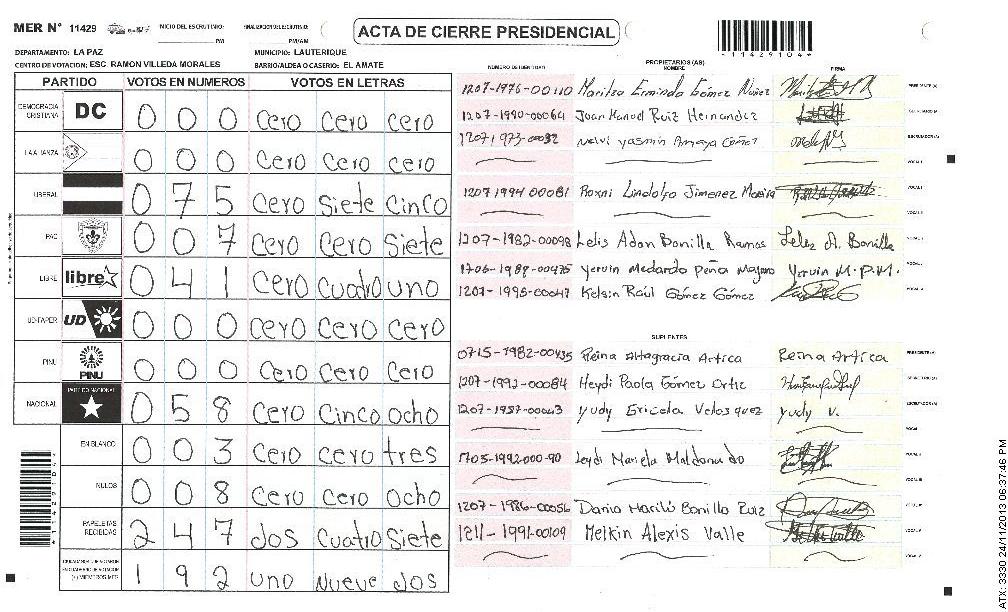 MER N° 11429 INICIO DEL ESCRUTINIO: PM PM/AM
ACTA DE CIERRE PRESIDENCIAL
*11429104*
DEPARTAMENTO: LA PAZ MUNICIPIO: LAUTERIQUE
CENTRO DE VOTACION: ESC. RAMON VILLEDA MORALES BARRIO/ALDEA O CASERIO: EL AMATE
PARTIDO VOTOS EN NUMEROS VOTOS EN LETRAS
DEMOCRACIA CRISTIANA DC 0 0 0 Cero Cero Cero
LA ALIANZA 0 0 0 Cero Cero Cero
LIBERAL 0 7 5 Cero Siete Cinco
PAC 0 0 7 Cero Cero Siete
LIBRE libre 0 4 1 Cero Cuatro uno
UD-FAPER UD 0 0 0 Cero Cero Cero
PINU PINU 0 0 0 Cero Cero Cero
NACIONAL PARTIDO NACIONAL 0 5 8 Cero Cinco ocho
EN BLANCO 0 0 3 Cero cero tres
NULOS 0 0 8 Cero Cero Ocho
PAPELETAS RECIBIDAS 2 4 7 dos Cuatro Siete
1 9 2 uno Nueve dos
NUMERO DE IDENTIDAD PROPIETARIOS (AS) NOMBRE FIRMA
1207-1976-00110 Maritza Erminda Gómez Nuñez
1207-1990-00064 Joan Manuel Ruiz Hernandez
Nelvi yasmin Amaya Gómez
1207 1994 00081 Roxni Lindolfo Jimenez
1207-1982-00098 Lelis Adan Bonilla Ramos Leles A. Bonilla
Yervin Medardo Peña Yervin M.P.M.
1207-1995-00047 Kelsin Raúl Gómez Gómez
SUPLENTES
0715-1982-00435 Reina Altagracia Artica Reina Artica
1207-1992-00084 Heydi Paola Gómez Ortiz
1207-1987-00043 Yudy Ericela Velasquez Yudy V.
1703-1992-000-90 Leydi Mariela Maldonado
1207-1986-00056 Dania Marilú Bonilla Ruiz
1211-1991-00109 Melkin Alexis Valle
*11429104*
ATX: 3330 24/11/2013 06:37:46 PM